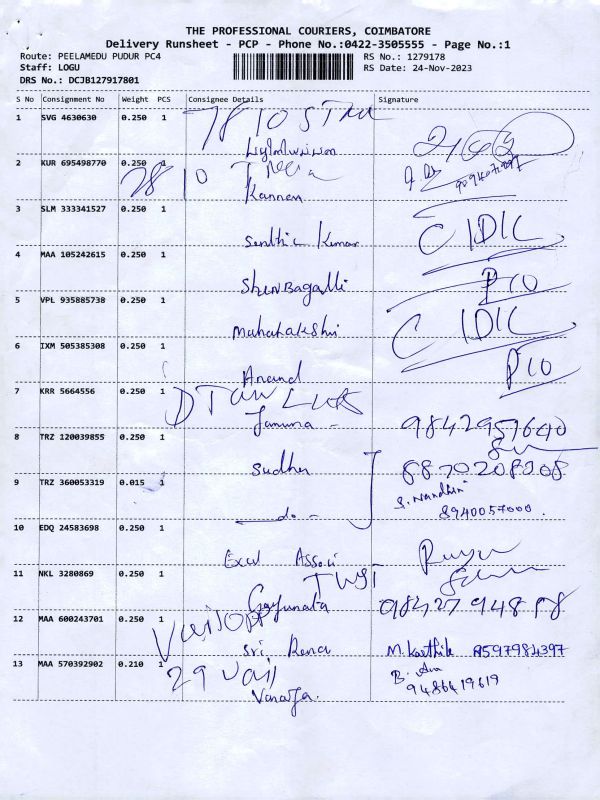 THE PROFESSIONAL COURIERS, COIMBATORE
Delivery Runsheet - PCP - Phone No.:0422-3505555 - Page No.:1
Route: PEELAMEDU PUDUR PC4
RS No.: 1279178
Staff: LOGU
RS Date: 24-Nov-2023
DRS No.: DCJB127917801
S No Consignment No Weight PCS Consignee Details Signature
1 SVG 4630630 0.250 1
2 KUR 695498770 0.250 1
Kannan
3 SLM 333341527 0.250 1
Senthil Kumar CIDIC
4 MAA 105242615 0.250 1
Shenbagalli P10
5 VPL 935885738 0.250 1
Mahalakshmi CIDIC
6 IXM 505385308 0.250 1
Anand P10
7 KRR 5664556 0.250 1
Jamuna - 9842957640
8 TRZ 120039855 0.250 1
Sudha 8870208208
9 TRZ 360053319 0.015 1
S. Nandhini
- do - 8940057000.
10 EDQ 24583698 0.250 1
Excel Associ
11 NKL 3280869 0.250 1
12 MAA 600243701 0.250 1
Sri Rena M. Karthik
13 MAA 570392902 0.210 1
29
Vanaja. 9486419619